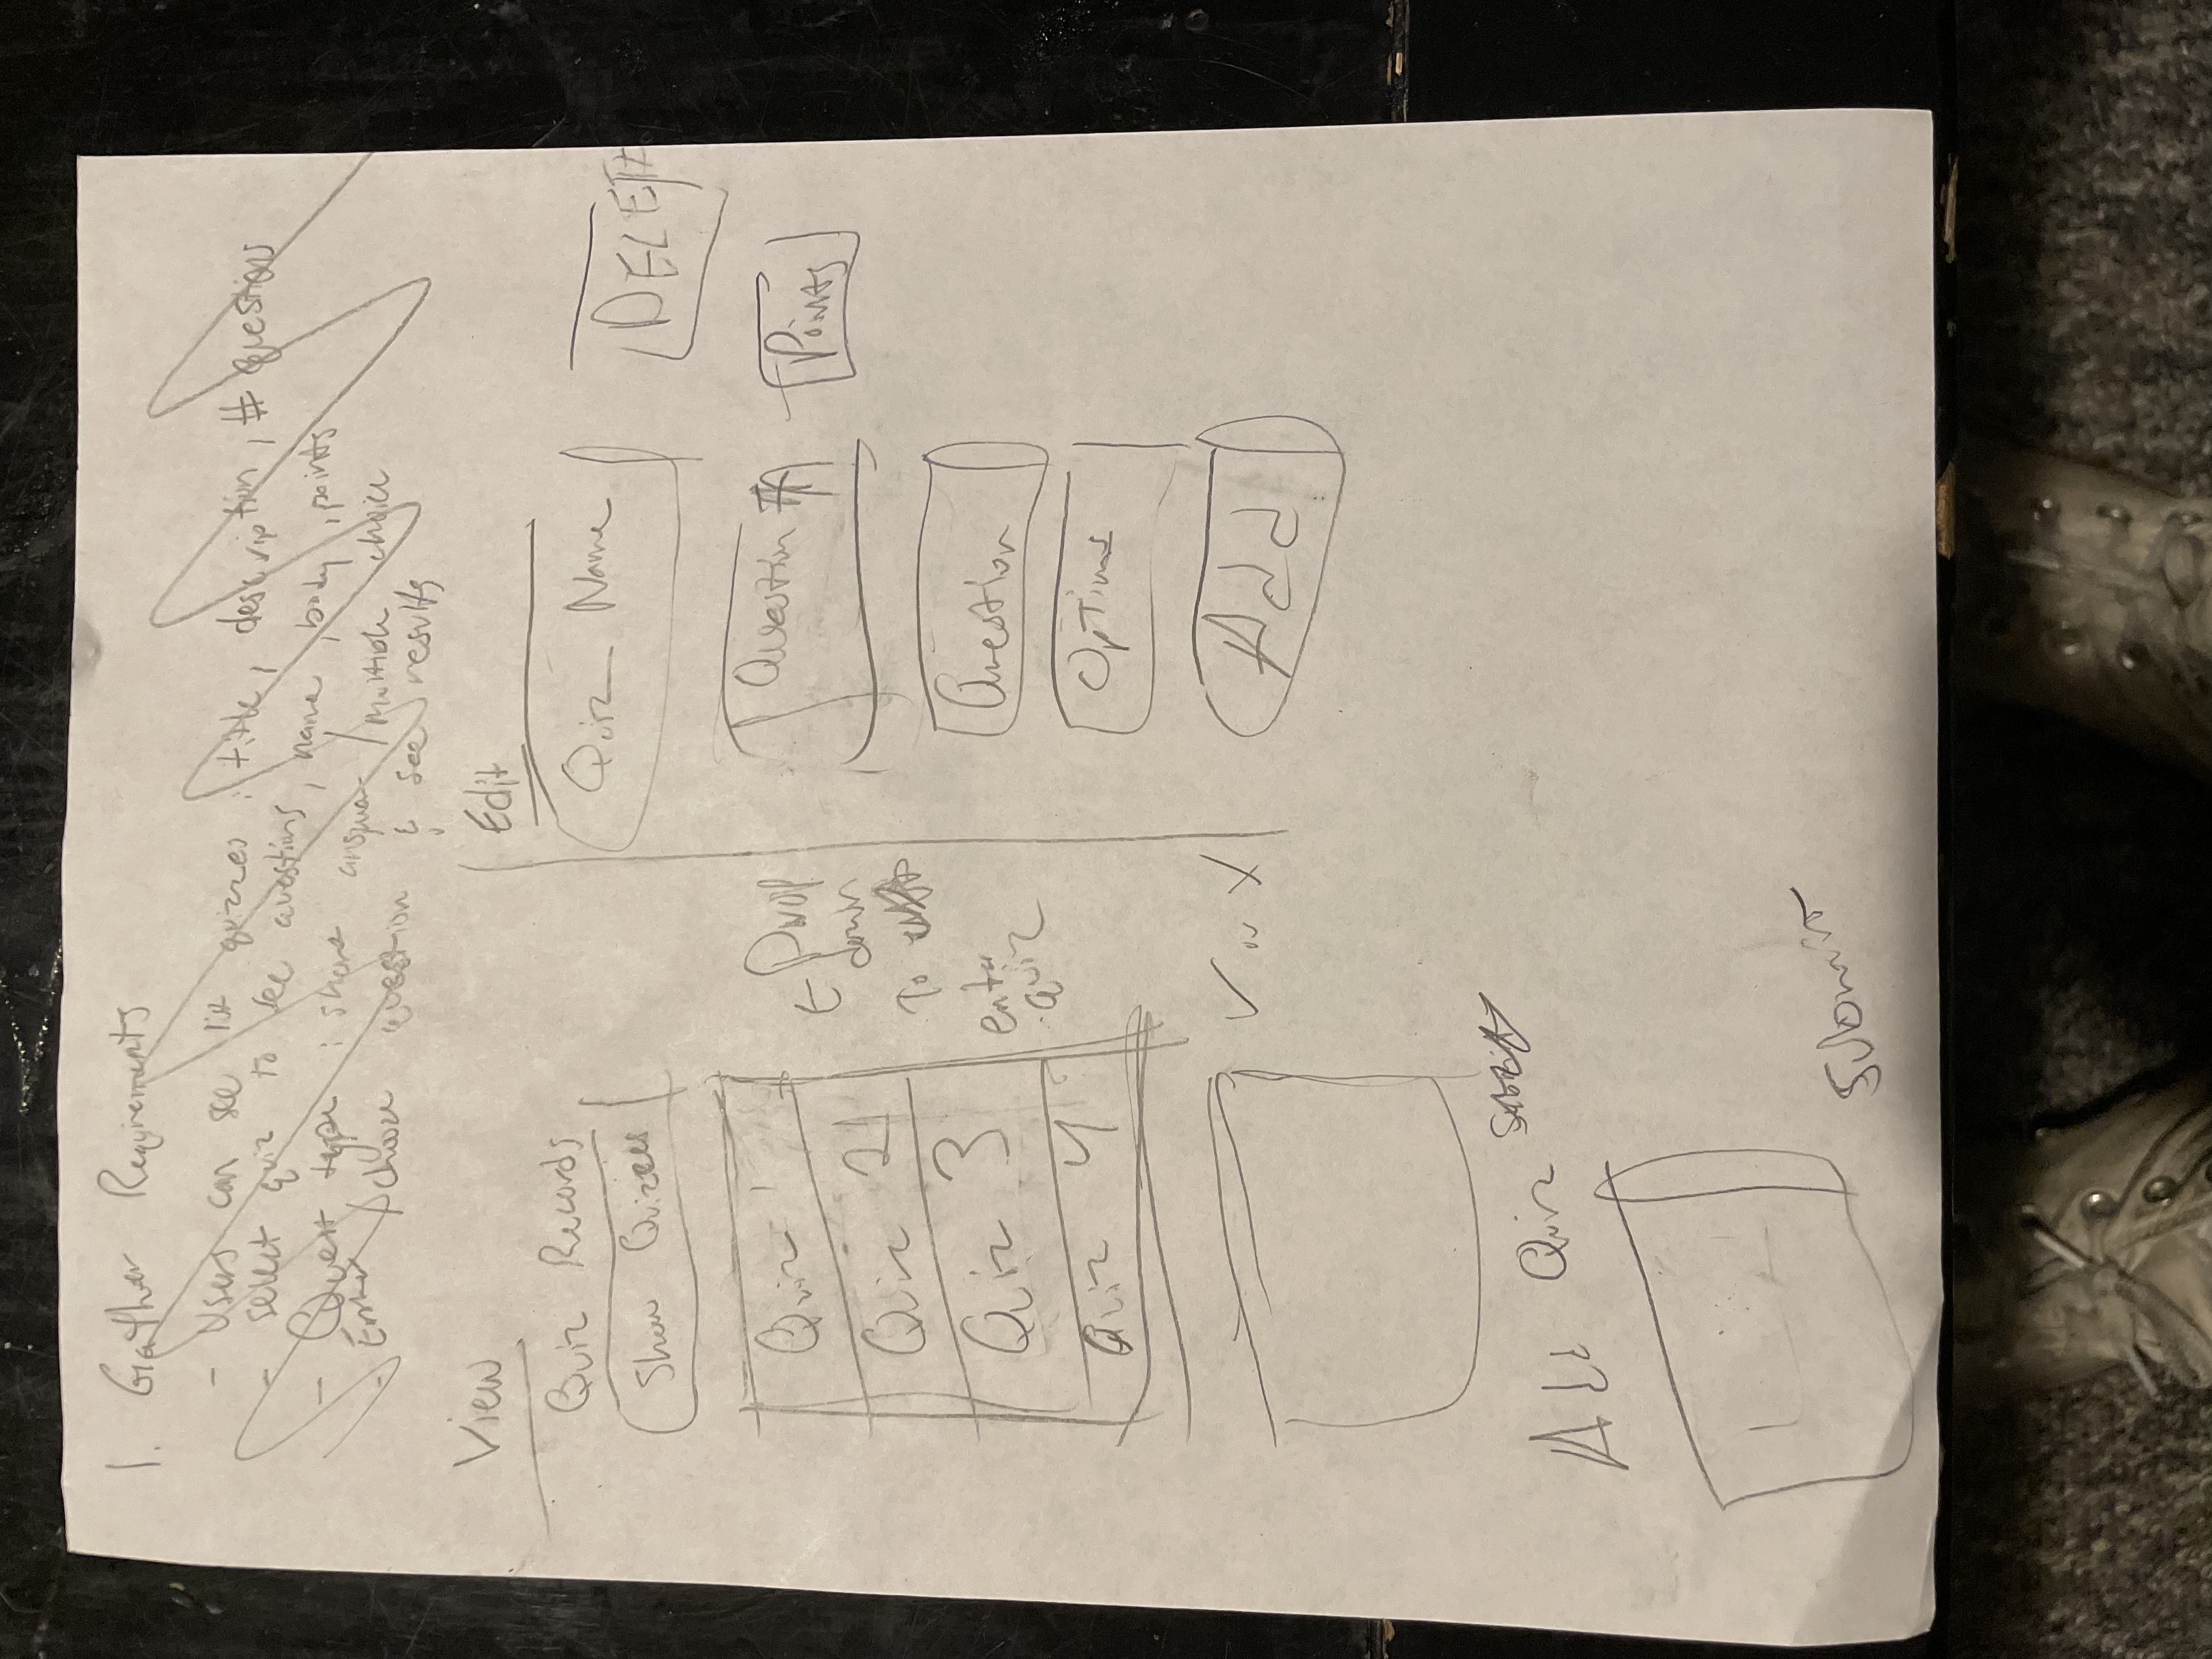 1. Gather Requirements
- Users can see list quizzes : title, description, # questions
- select quiz to see questions, name, body, points
- Quest type : short answer / multiple choice
- Enter / choose question & see results
View
Quiz Records
Show Quizzes
Quiz 1
Quiz 2
Quiz 3
Quiz 4
← Drop
down
To
enter
quiz
✓ or X
Add Quiz
Submit
Edit
Quiz Name
DELETE
Question #
Points
Question
Options
Add